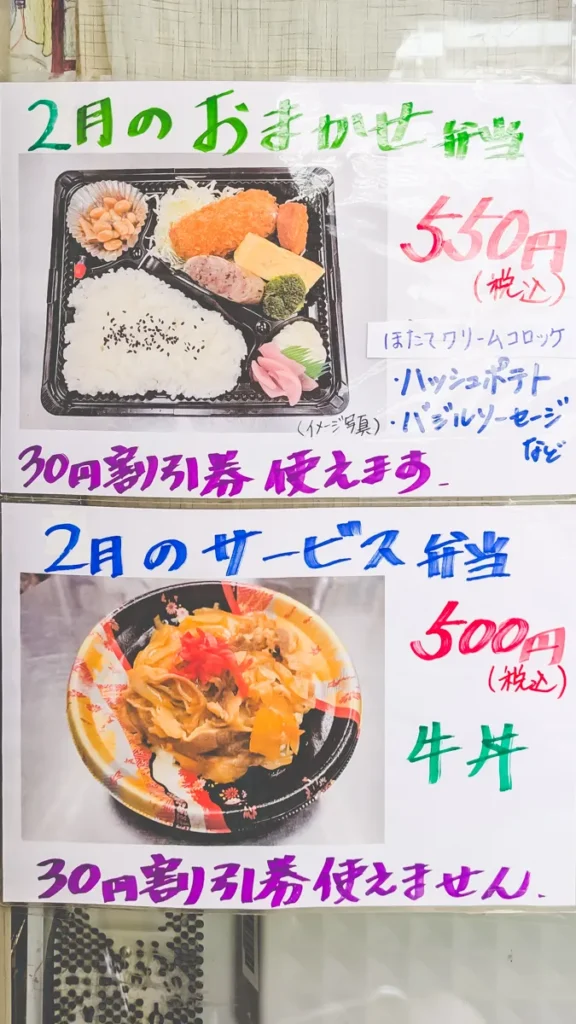 2月のおまかせ弁当
550円
(税込)
ほたてクリームコロッケ
・ハッシュポテト
・バジルソーセージ
など
(イメージ写真)
30円割引券使えます.
2月のサービス弁当
500円
(税込)
牛丼
30円割引券使えません.